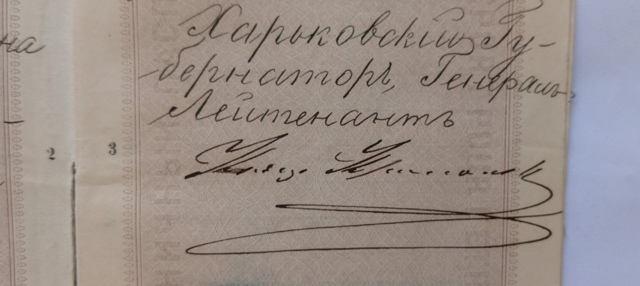 на
Харьковскій Гу-
бернаторъ, Генералъ-
Лейтенантъ
2 3
Князь